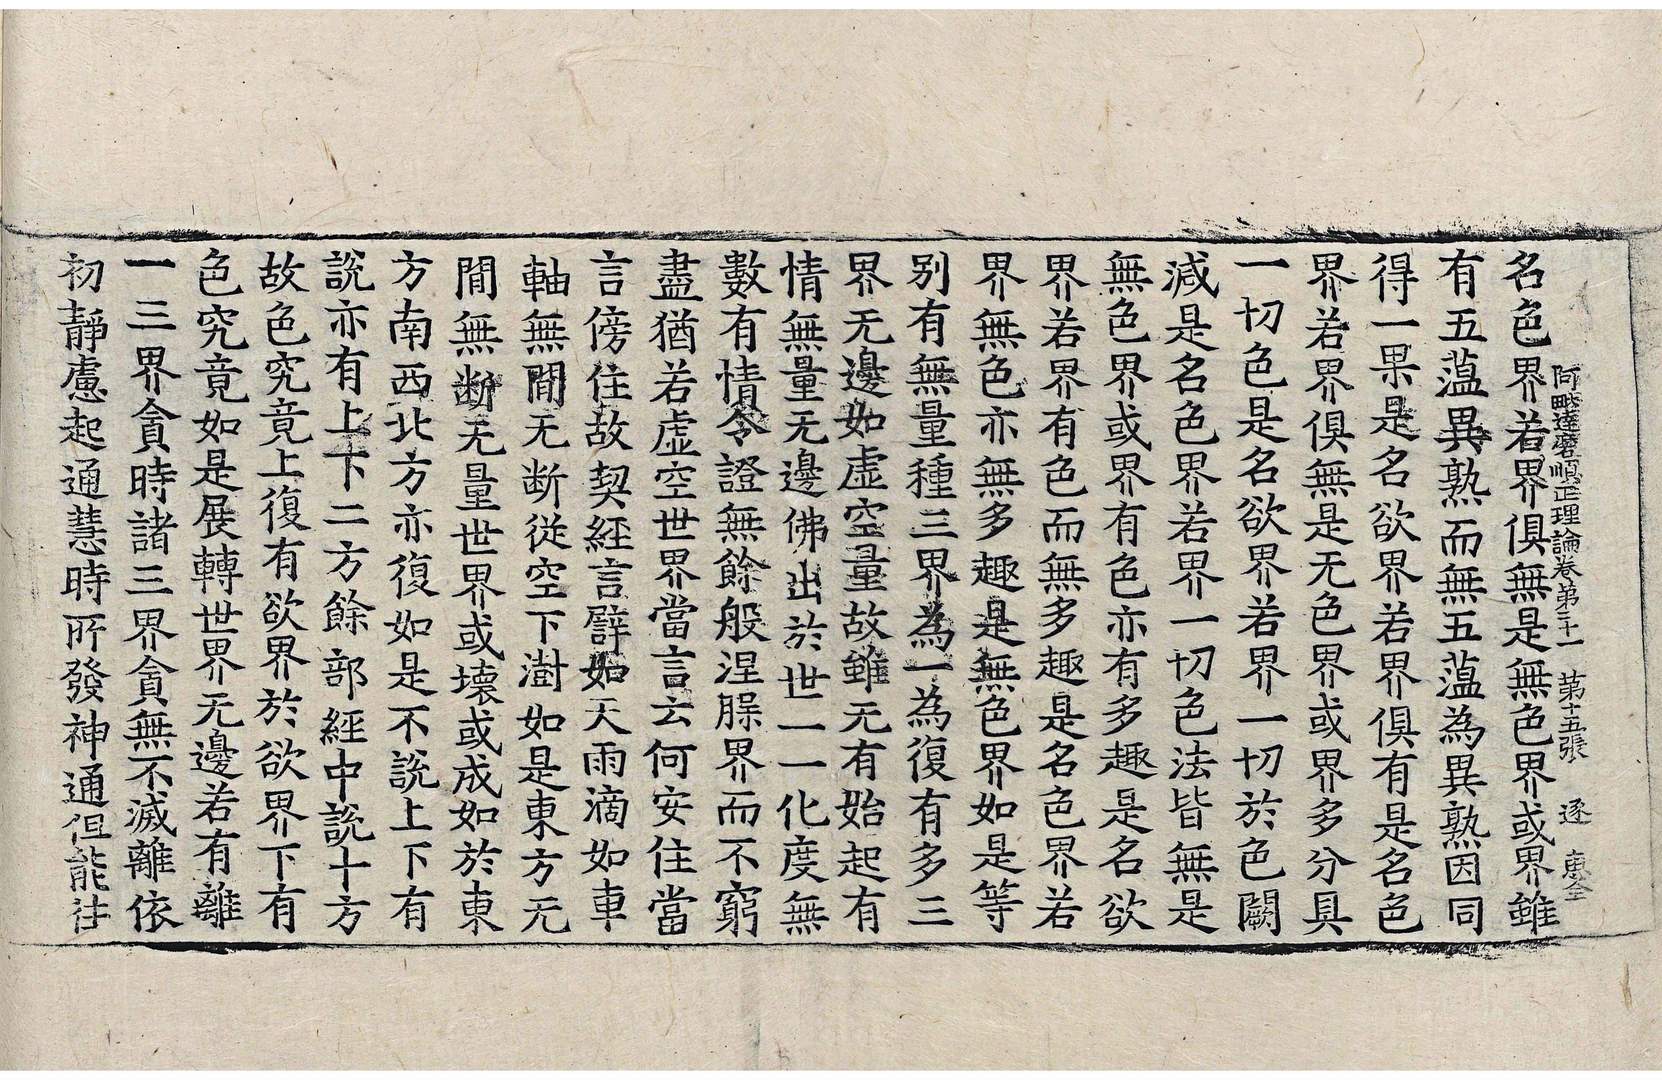 阿毗達磨順正理論卷第二十一　第十五張　逐　東全
名色界若界俱無是無色界或界雖
有五蕰異熟而無五蕰為異熟因同
得一果是名欲界若界俱有是名色
界若界俱無是无色界或界多分具
一切色是名欲界若界一切於色闕
減是名色界若界一切色法皆無是
無色界或界有色亦有多趣是名欲
界若界有色而無多趣是名色界若
界無色亦無多趣是無色界如是等
别有無量種三界為一為復有多三
界无邊如虛空量故雖无有始起有
情無量无邊佛出於世一一化度無
數有情令證無餘般涅脵界而不窮
盡猶若虛空世界當言云何安住當
言傍住故契經言譬如天雨滴如車
軸無間无断從空下澍如是東方无
間無断无量世界或壞或成如於東
方南西北方亦復如是不說上下有
說亦有上下二方餘部經中說十方
故色究竟上復有欲界於欲界下有
色究竟如是展轉世界无邊若有離
一三界貪時諸三界貪無不滅離依
初靜慮起通慧時所發神通但能往